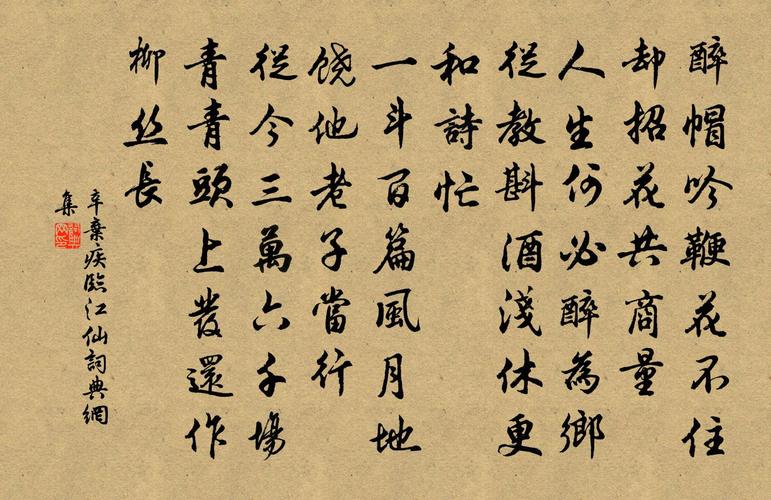 醉帽吟鞭花不住
却招花共商量
人生何必醉為鄉
從教斟酒淺休更
和詩忙
一斗百篇風月地
饒他老子當行
從今三萬六千場
青青頭上髮還作
柳丝長
辛棄疾臨江仙詞典網
集